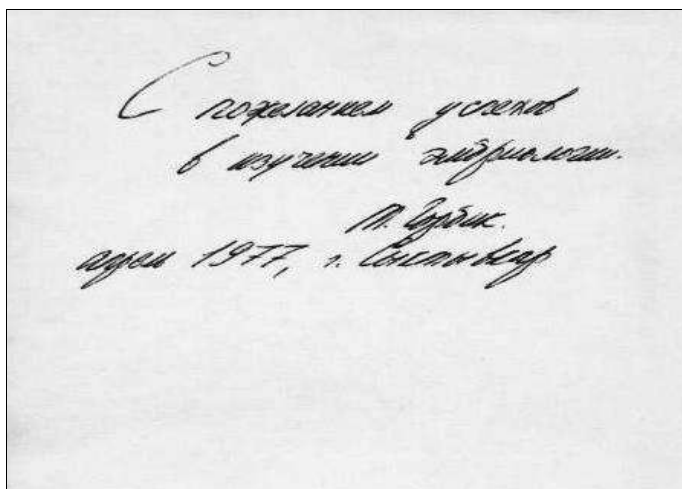 С пожеланием успехов
в изучении эмбриологии.
Т.
апрель 1977, г. Сыктывкар